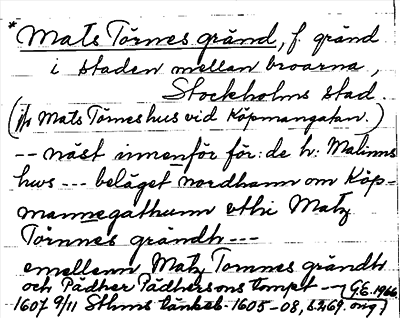 * Mats Törnes gränd, f. gränd
i staden mellan broarna,
Stockholms stad.
(jfr Mats Törnes hus vid Köpmangatan.)
-- näst innenför för: de h: Malinns
hws --- beläget nordhann om Köp-
mannegathunn vthi Matz
Törnnes grändh ---
emellenn Matz Tomnes grändh
och Pädher Pädhersons tompt -- (G.E. 1966.
1607 9/11 Sthms tänkeb. 1605-08, s. 269. orig)